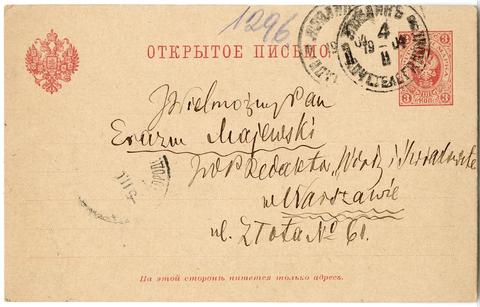 1296
ОТКРЫТОЕ ПИСЬМО.
ЛЮБЛИНЪ
4
19 04
II
3
3 КОП. 3
Wielmożny Pan
Erazm Majewski
W Redakcji „
w Warszawie
ul. Złota No 61.
На этой сторонѣ пишется только адресъ.